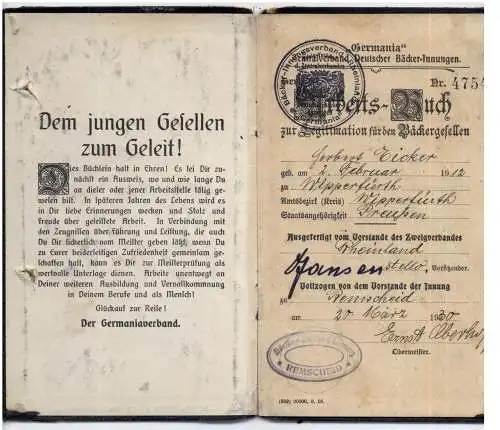 Dem jungen Gesellen
zum Geleit!
Dies Büchlein halt in Ehren! Es sei Dir zu-
nächst ein Ausweis, wo und wie lange Du
an dieser oder jener Arbeitsstelle tätig ge-
wesen bist. In späteren Jahren des Lebens wird es
in Dir liebe Erinnerungen wecken und Stolz und
Freude über geleistete Arbeit. In Verbindung mit
den Zeugnissen über Führung und Leistung, die auch
Du Dir sicherlich vom Meister geben läßt, wenn Du
zu Eurer beiderseitigen Zufriedenheit gemeinsam ge-
schafft hast, kann es Dir zur Meisterprüfung als
wertvolle Unterlage dienen. Arbeite unentwegt an
Deiner weiteren Ausbildung und Vervollkommnung
in Deinem Berufe und als Mensch!
Glückauf zur Reise!
Der Germaniaverband.
Germania“
Centralverband Deutscher Bäcker-Innungen.
Nr. 4754
Arbeits-Buch
zur Legitimation für den Bäckergesellen
Herbert Eicker
geb. am 2. Februar 1912
zu Wipperfürth
Amtsbezirk (Kreis) Wipperfürth
Staatsangehörigkeit Preußen
Ausgefertigt vom Vorstande des Zweigverbandes
Rheinland
Jansen stellv. Vorsitzender.
Vollzogen von dem Vorstande der Innung
zu Remscheid
am 20 März 1930
Ernst
Obermeister.
REMSCHEID